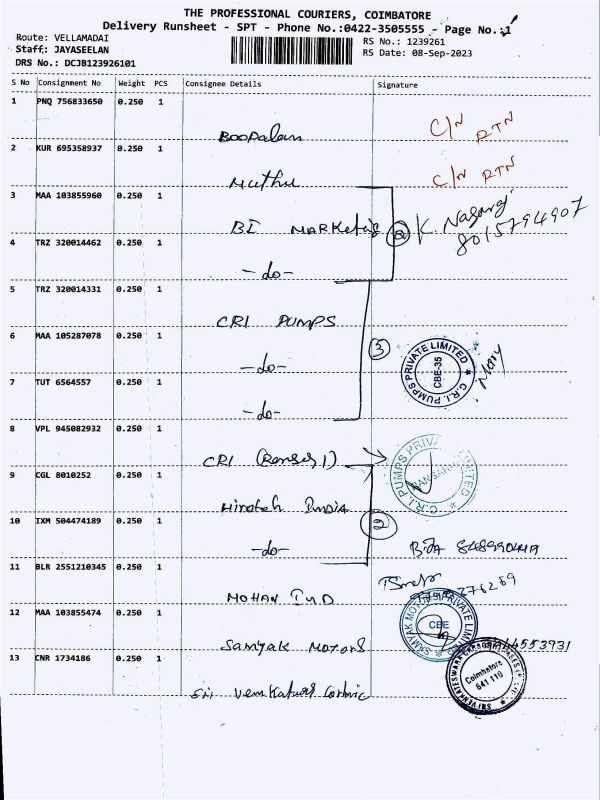 THE PROFESSIONAL COURIERS, COIMBATORE
Delivery Runsheet - SPT - Phone No.:0422-3505555 - Page No.:1
Route: VELLAMADAI
RS No.: 1239261
Staff: JAYASEELAN
RS Date: 08-Sep-2023
DRS No.: DCJB123926101
S No Consignment No Weight PCS Consignee Details Signature
1 PNQ 756833650 0.250 1
Boopalan C/N RTN
2 KUR 695358937 0.250 1
Muthu C/N RTN
3 MAA 103855960 0.250 1
BI MARKeting 2 K. Nagaraj
8015794907
4 TRZ 320014462 0.250 1
-do-
5 TRZ 320014331 0.250 1
CRI PUMPS
6 MAA 105287078 0.250 1
-do- 3 C.R.I. PUMPS PRIVATE LIMITED CBE-35
7 TUT 6564557 0.250 1
-do-
8 VPL 945082932 0.250 1
CRI C.R.I. PUMPS PRIVATE LIMITED
9 CGL 8010252 0.250 1
India
10 IXM 504474189 0.250 1
-do- 2
11 BLR 2551210345 0.250 1
MOHAN IND
12 MAA 103855474 0.250 1
Samyak Motors SAMYAK MOTORS PRIVATE LIMITED CBE
13 CNR 1734186 0.250 1
Sri Coimbatore 641 110